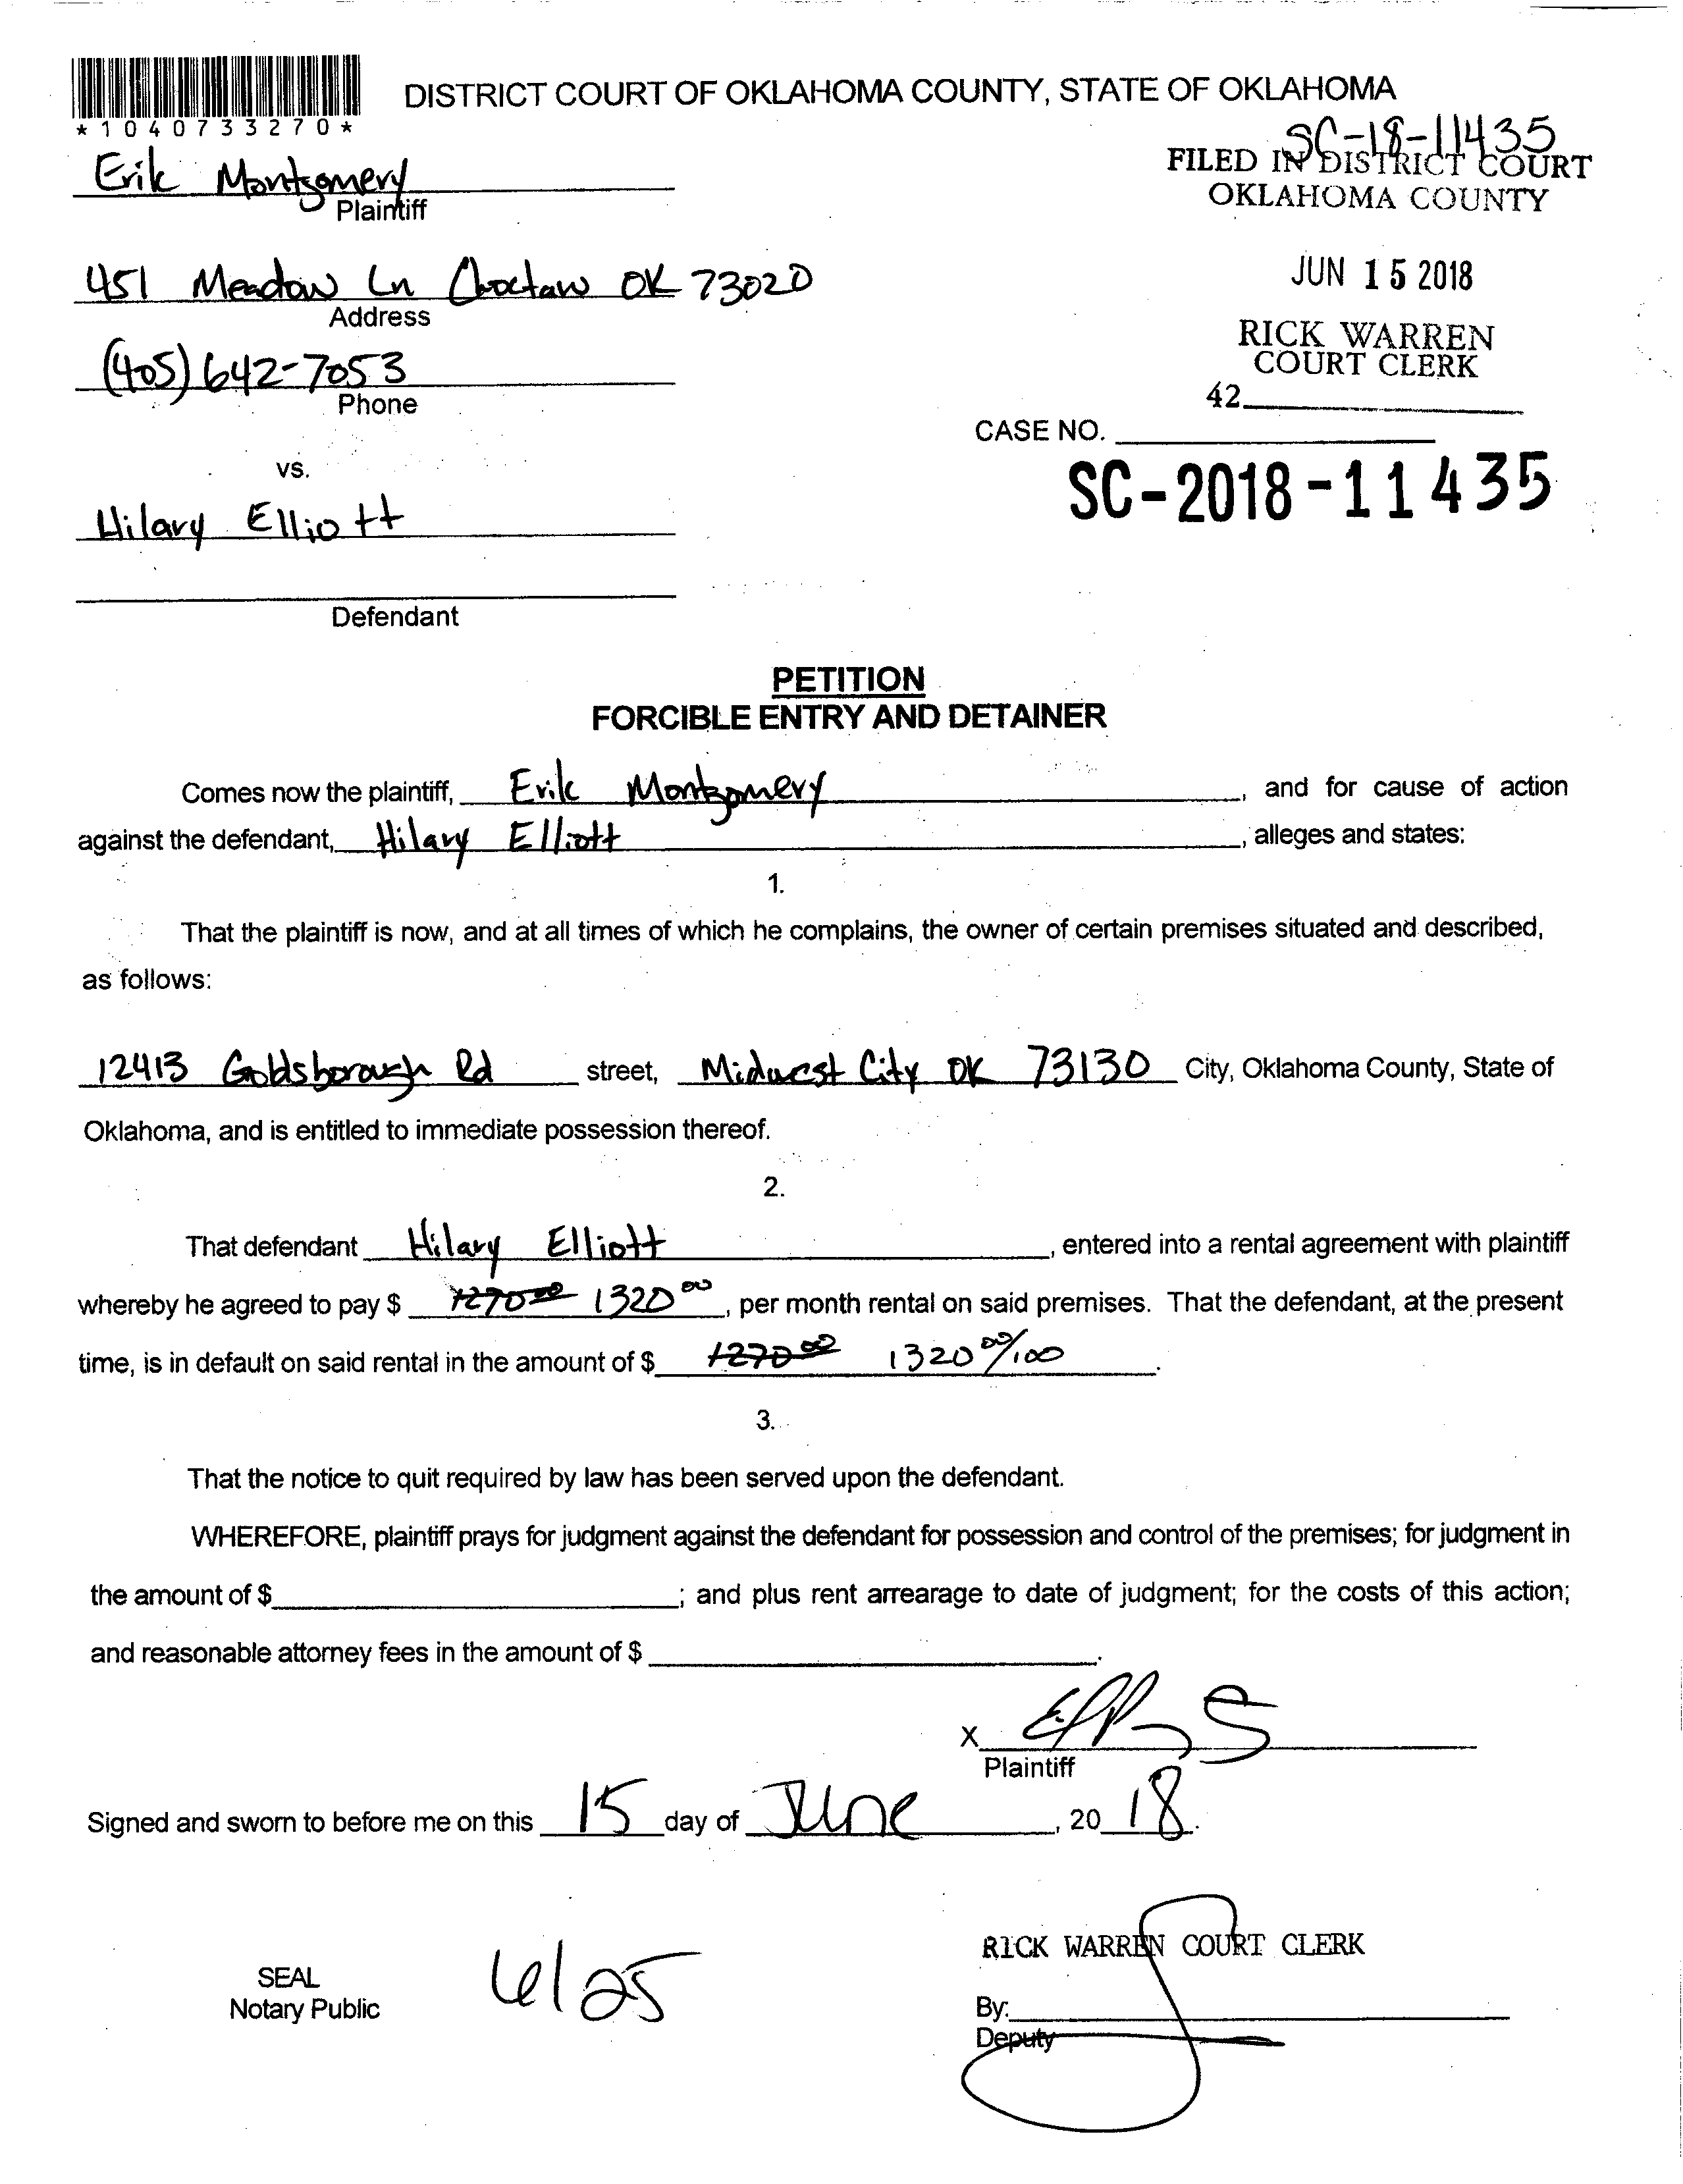 DISTRICT COURT OF OKLAHOMA COUNTY, STATE OF OKLAHOMA
*1040733270*
SC-18-11435
FILED IN DISTRICT COURT
OKLAHOMA COUNTY
Erik Montgomery
Plaintiff
JUN 15 2018
451 Meadow Ln Choctaw OK 73020
Address
RICK WARREN
COURT CLERK
(405) 642-7053
Phone
42
CASE NO.
SC-2018-11435
vs.
Hilary Elliott
Defendant
PETITION
FORCIBLE ENTRY AND DETAINER
Comes now the plaintiff, Erik Montgomery, and for cause of action
against the defendant, Hilary Elliott, alleges and states:
1.
That the plaintiff is now, and at all times of which he complains, the owner of certain premises situated and described,
as follows:
12413 Goldsborough Rd street, Midwest City OK 73130 City, Oklahoma County, State of
Oklahoma, and is entitled to immediate possession thereof.
2.
That defendant Hilary Elliott, entered into a rental agreement with plaintiff
whereby he agreed to pay $ 1270.00 1320 00, per month rental on said premises. That the defendant, at the present
time, is in default on said rental in the amount of $ 1270.00 1320 00/100.
3.
That the notice to quit required by law has been served upon the defendant.
WHEREFORE, plaintiff prays for judgment against the defendant for possession and control of the premises; for judgment in
the amount of $; and plus rent arrearage to date of judgment; for the costs of this action;
and reasonable attorney fees in the amount of $.
X
Plaintiff
Signed and sworn to before me on this 15 day of June, 20 18.
RICK WARREN COURT CLERK
SEAL
Notary Public
6/25
By:
Deputy